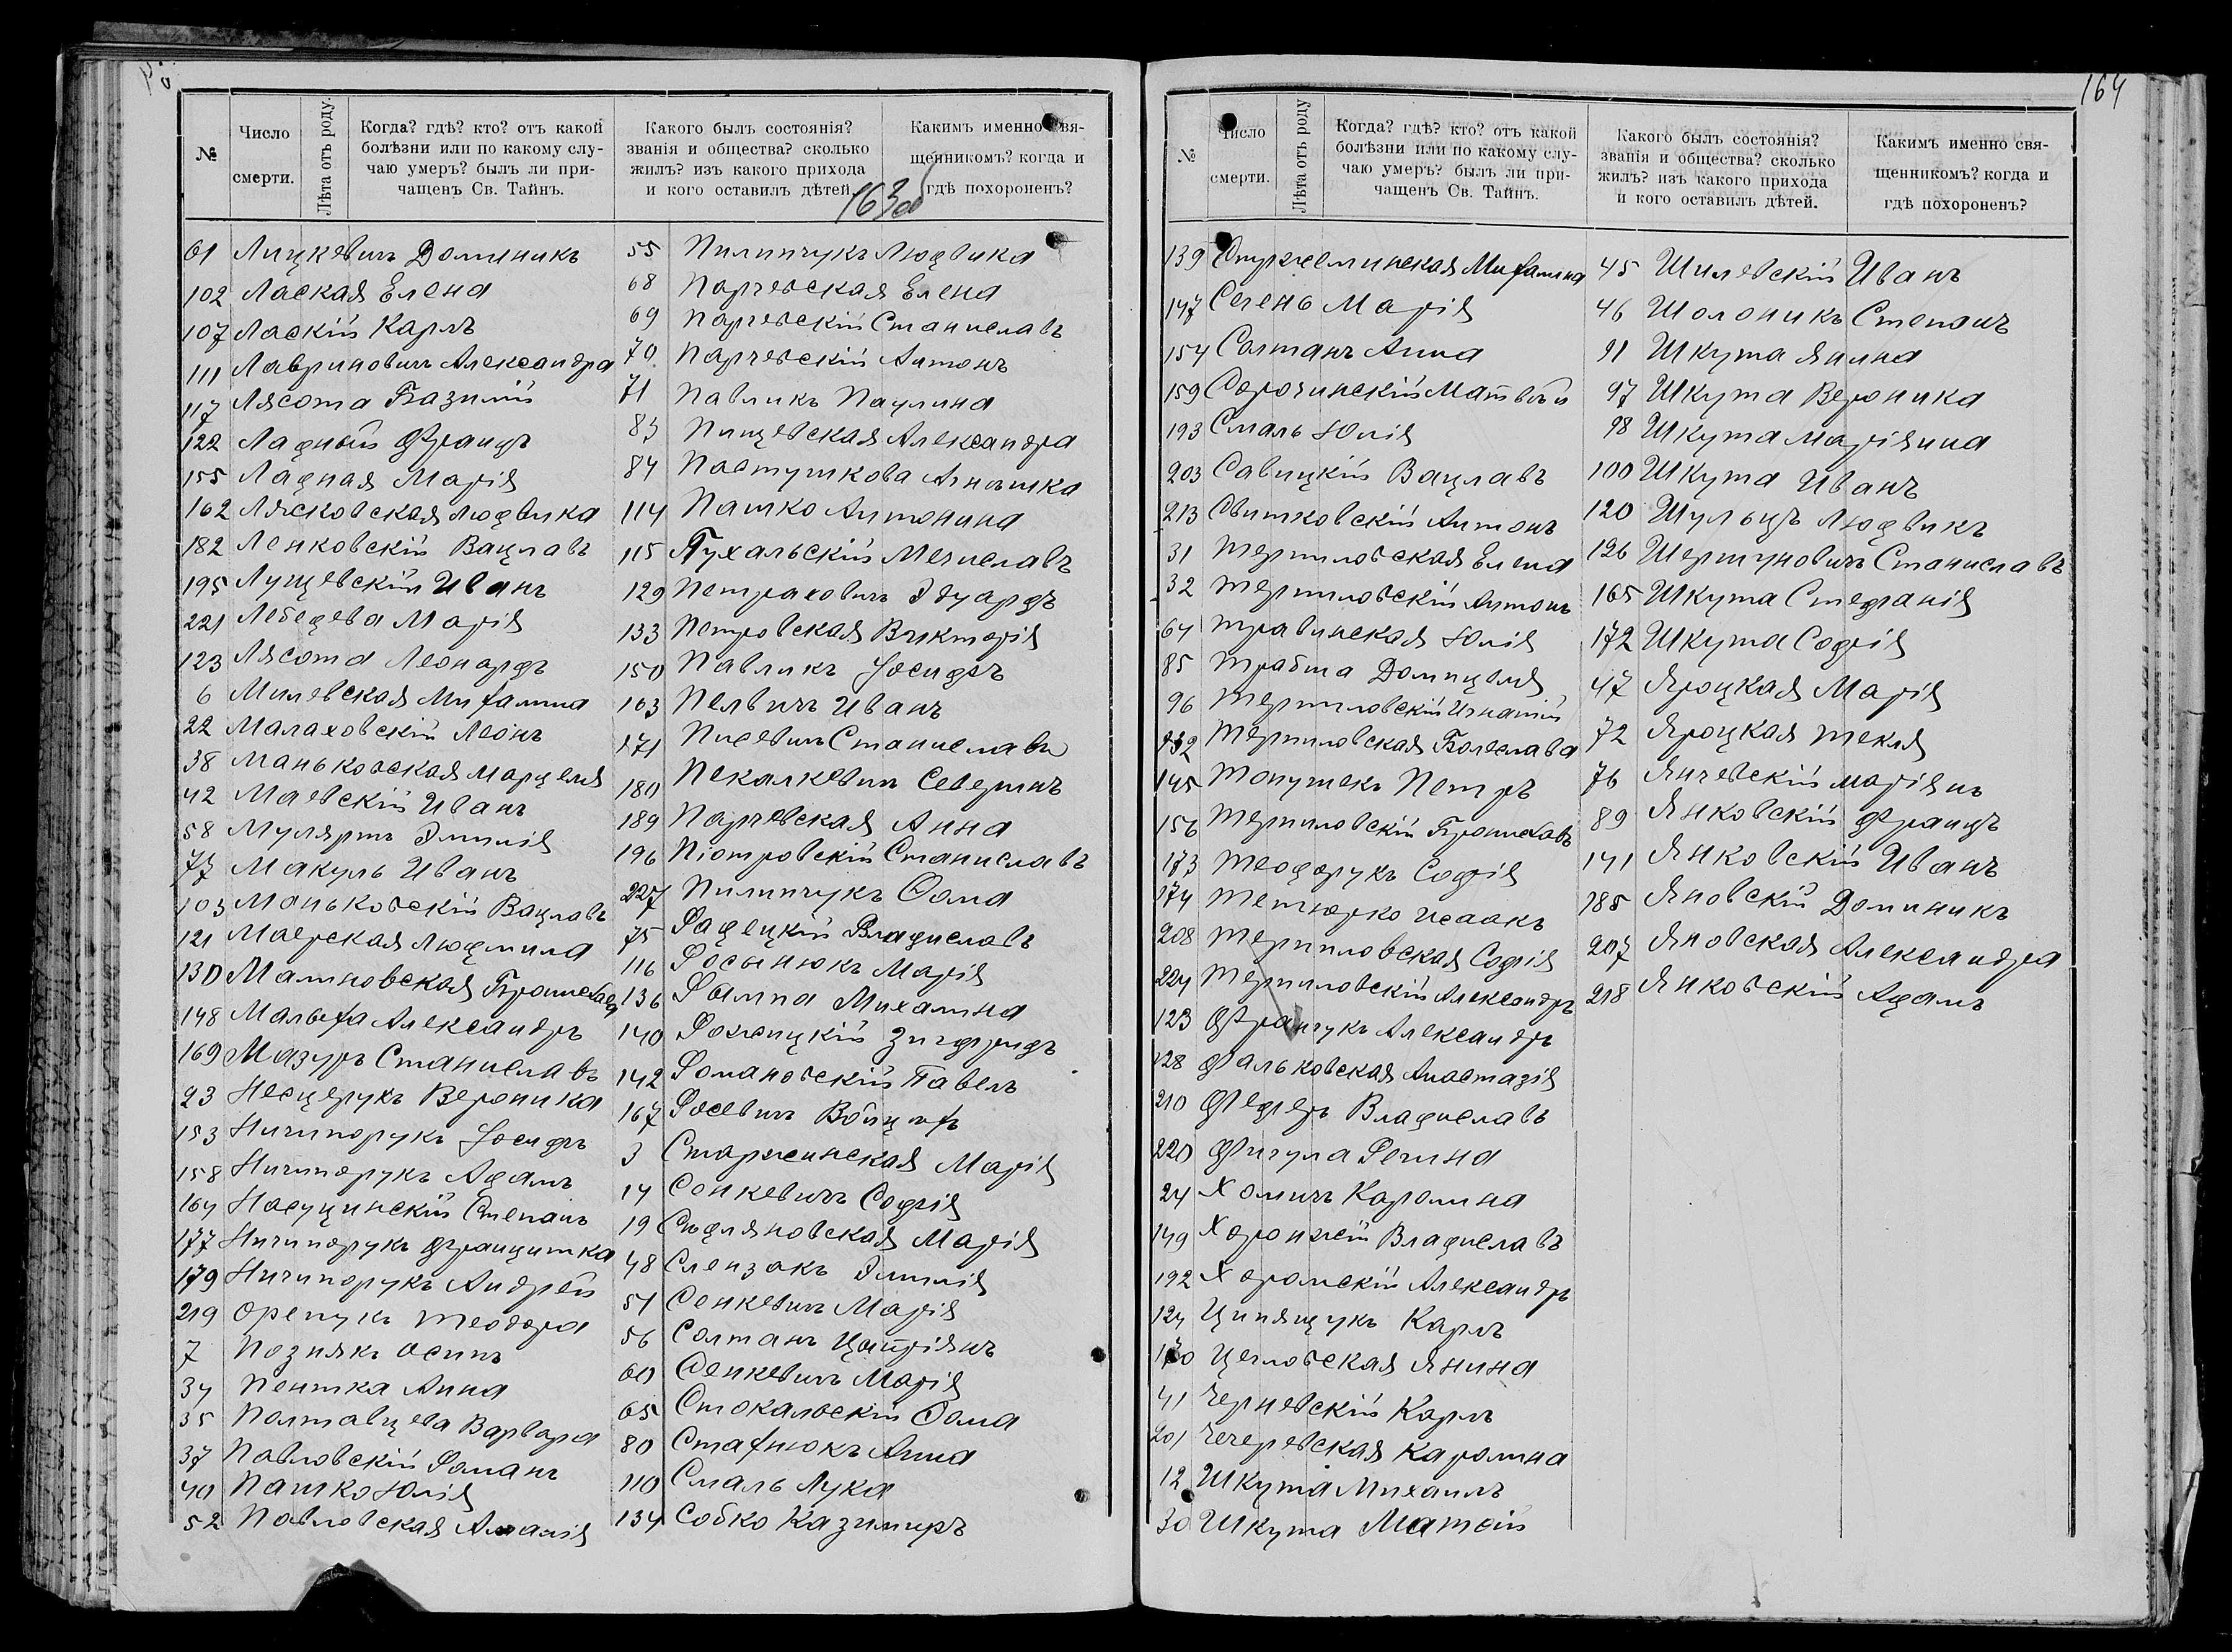 №
Число смерти.
Лѣта отъ роду.
Когда? гдѣ? кто? отъ какой
болѣзни или по какому слу-
чаю умеръ? былъ ли при-
чащенъ Св. Тайнъ.
Какого былъ состоянія?
званія и общества? сколько
жилъ? изъ какого прихода
и кого оставилъ дѣтей.
Какимъ именно свя-
щенникомъ? когда и
гдѣ похороненъ?
163об
61 Лицкевичъ Доминикъ
102 Лаская Елена
107 Ласкій Карлъ
111 Лавриновичъ Александра
117 Лясота Базилій
122 Ладный Францъ
155 Ладная Марія
162 Лясковская Людвика
182 Ленковскій Вацлавъ
195 Лущевскій Иванъ
221 Лебедева Марія
123 Лясота Леонардъ
6 Милевская Михалина
22 Малаховскій Леонъ
38 Маньковская Марцеля
42 Маевскій Иванъ
58 Муляртъ Эмилія
77 Макуль Иванъ
103 Маньковскій Вацлавъ
121 Маерская Людмила
130 Малиновская Бронислава
148 Малыха Александръ
169 Мазуръ Станиславъ
23 Несцерукъ Вероника
153 Ничипорукъ Іосифъ
158 Ничипорукъ Адамъ
164 Насуцинскій Степанъ
177 Ничипорукъ Францишка
179 Ничипорукъ Андрей
219 Орепукъ Теодора
7 Познякъ Осипъ
34 Пентка Анна
35 Полтавцева Варвара
37 Павловскій Романъ
40 Пашко Юлія
52 Павловская Амалія
55 Пилипчукъ Людвика
68 Парчевская Елена
69 Парчевскій Станиславъ
70 Парчевскій Антонъ
71 Павликъ Паулина
83 Пищевская Александра
84 Пастушкова Агнешка
114 Пашко Антонина
115 Пухальскій Мечиславъ
129 Петраховичъ Эдуардъ
133 Петровская Викторія
150 Павликъ Іосифъ
163 Пелвичъ Иванъ
171 Писевичъ Станиславъ
180 Пекалкевичъ Северинъ
189 Парчевская Анна
196 Піотровскій Станиславъ
227 Пилипчукъ Ѳома
75 Радецкій Владиславъ
116 Росынюкъ Марія
136 Рымпа Михалина
140 Рожицкій Зигфридъ
142 Романовскій Павелъ
167 Росевичъ Войцехъ
3 Старжинская Марія
14 Сенкевичъ Софія
19 Сѣдляновская Марія
48 Слензакъ Эмилія
51 Сенкевичъ Марія
56 Солтанъ Ципріянъ
60 Сенкевичъ Марія
65 Стокальскій Ѳома
80 Стахнюкъ Анна
110 Смаль Лука
134 Собко Казимиръ
164
№
Число смерти.
Лѣта отъ роду
Когда? гдѣ? кто? отъ какой
болѣзни или по какому слу-
чаю умеръ? былъ ли при-
чащенъ Св. Тайнъ.
Какого былъ состоянія?
званія и общества? сколько
жилъ? изъ какого прихода
и кого оставилъ дѣтей.
Какимъ именно свя-
щенникомъ? когда и
гдѣ похороненъ?
139 Стржелминская Михалина
147 Сечень Марія
154 Солтанъ Анна
159 Сорочинскій Матвѣй
193 Смаль Юлія
203 Савицкій Вацлавъ
213 Свитковскій Антонъ
31 Терпиловская Елена
32 Терпиловскій Антонъ
64 Травинская Юлія
85 Трабша Домицеля
96 Терпиловскій Игнатій
132 Терпиловская Болеслава
145 Топушекъ Петръ
156 Терпиловскій Брониславъ
173 Теодорукъ Софія
174 Тетюрко Исаакъ
208 Терпиловская Софія
224 Терпиловскій Александръ
123 Франчукъ Александръ
128 Фальковская Анастазія
210 Федгеръ Владиславъ
220 Фигула Регина
24 Хомичъ Каролина
149 Хоронжій Владиславъ
192 Хоромскій Александръ
124 Ципящукъ Карлъ
170 Цегловская Янина
41 Черневскій Карлъ
201 Чечеревская Каролина
12 Шкута Михаилъ
30 Шкута Матвій
45 Шилевскій Иванъ
46 Шолоникъ Степанъ
91 Шкута Янина
97 Шкута Вероника
98 Шкута Маріянна
100 Шкута Иванъ
120 Шульцъ Людвикъ
126 Шершуновичъ Станиславъ
165 Шкута Стефанія
172 Шкута Софія
47 Яроцкая Марія
72 Яроцкая Текля
76 Янчевскій Маріянъ
89 Янковскій Францъ
141 Янковскій Иванъ
185 Яновскій Доминикъ
207 Яновская Александра
218 Янковскій Адамъ